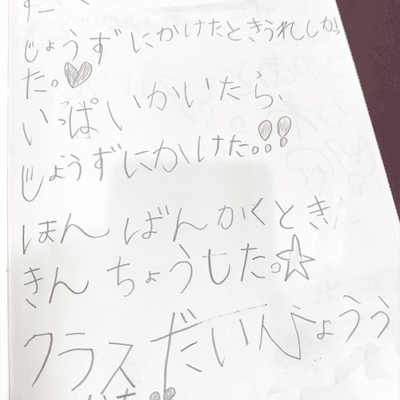 じょうずにかけたときうれしかっ
た。♥
いっぱいかいたら、
じょうずにかけた。!!
ほんばんかくとき
きんちょうした。☆
クラスだいひょうう